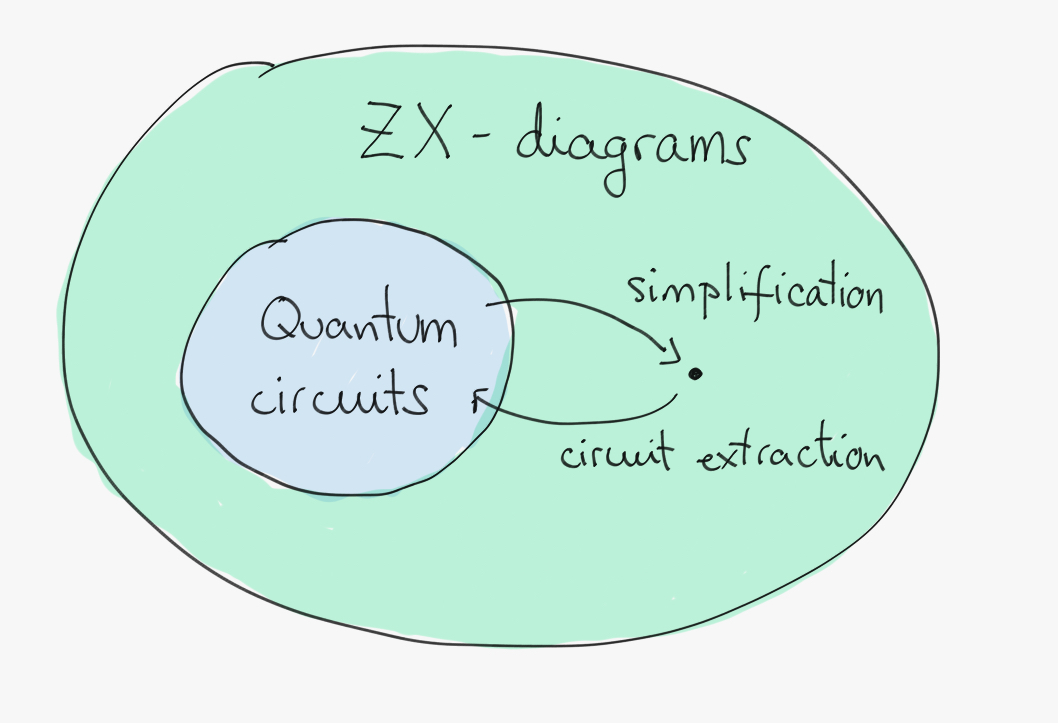 ZX - diagrams
Quantum
circuits
simplification
circuit extraction